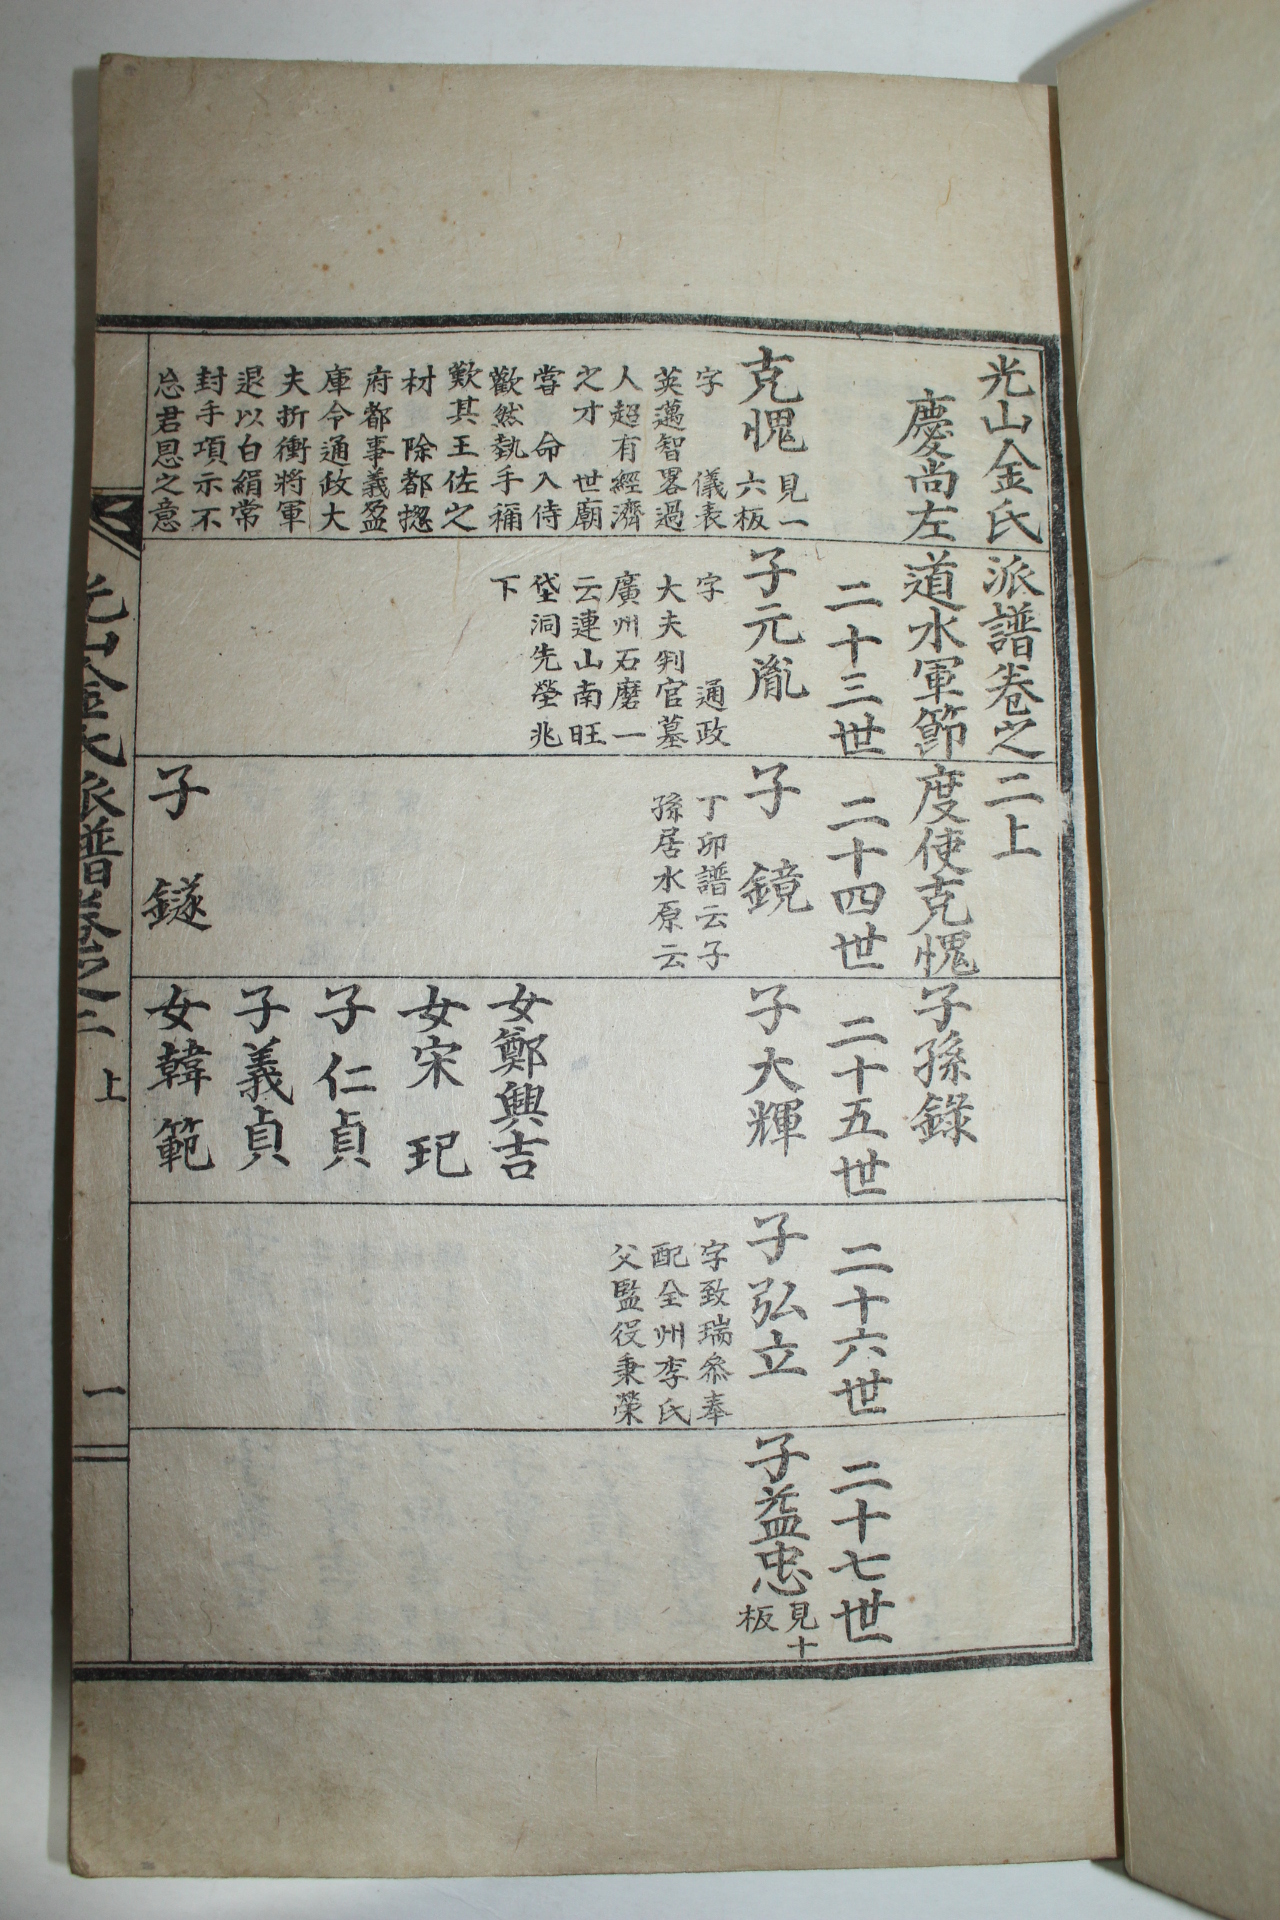 光山金氏派譜卷之二上
慶尚左道水軍節度使克愧子孫錄
克愧
見一
六板
字　儀表
英邁智畧過
人超有經濟
之才　世廟
嘗　命入侍
歡然執手稱
歎其王佐之
材　除都摠
府都事義盈
庫令通政大
夫折衝將軍
退以白絹常
封手項示不
忘君恩之意
二十三世
子元胤
字　通政
大夫判官墓
廣州石磨一
云連山南旺
垈洞先塋兆
下
二十四世
子　鏡
丁卯譜云子
孫居水原云
子　鐩
二十五世
子大輝
女鄭興吉
女宋　玘
子仁貞
子義貞
女韓範
二十六世
子弘立
字致瑞叅奉
配全州李氏
父監役秉榮
二十七世
子益忠
見十
板
光山金氏派譜卷之二上
一